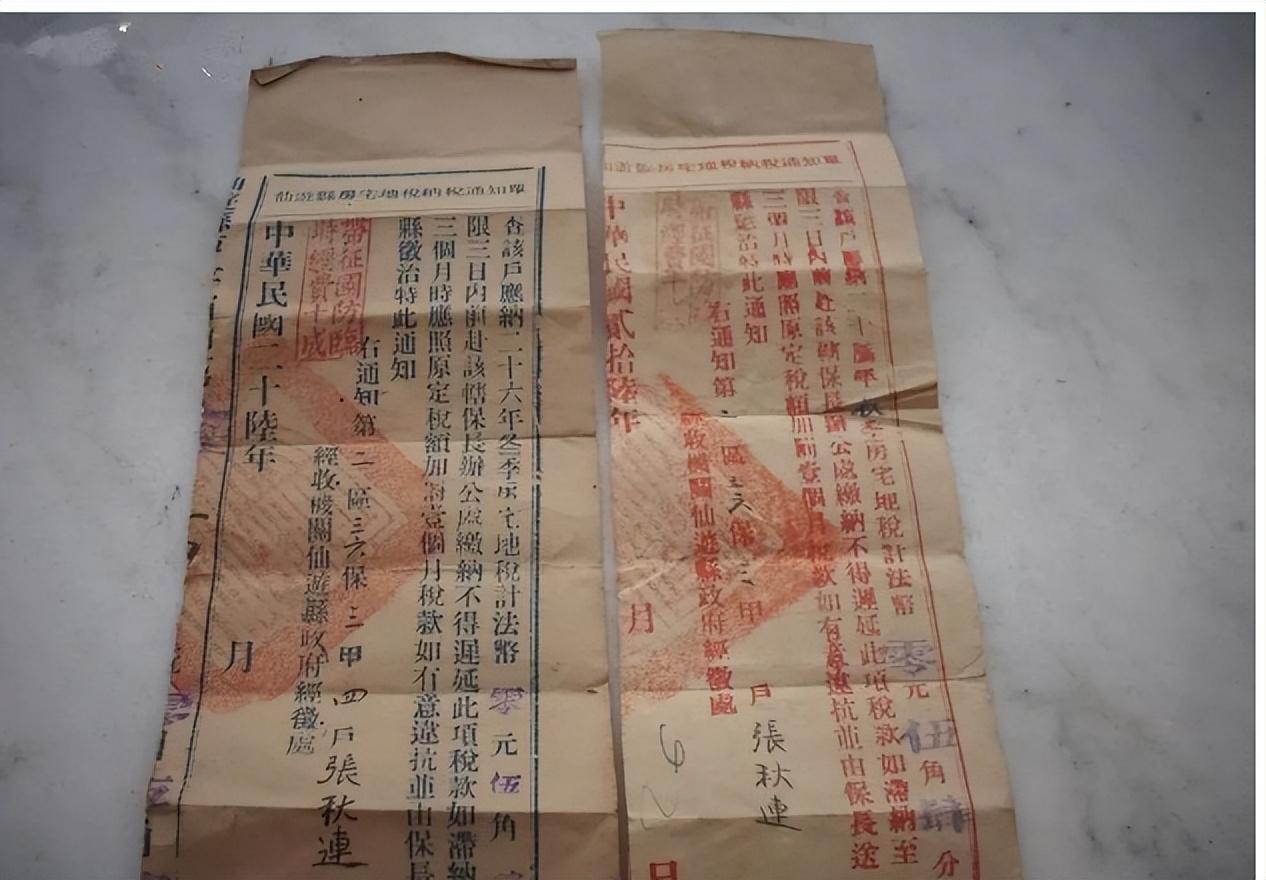 仙遊縣房宅地稅納稅通知單
查該戶應納二十六年冬季房宅地稅計法幣零元伍角
限三日內前赴該轄保長辦公處繳納不得遲延此項稅款如滯納
三個月時應照原定稅額加壹個月稅款如有意違抗並由保長
縣徵治特此通知
右通知第二區三六保三甲四戶張秋連
經收機關仙遊縣政府經徵處
帶征國防臨
時經費十成
中華民國二十陸年
月
房宅地稅納稅通知單
查該戶應納二十年秋季房宅地稅計法幣零元伍角肆分
限三日內前赴該轄保長辦公處繳納不得遲延此項稅款如滯納至
三個月時應照原定稅額加壹個月稅款如有意違抗並由保長送
縣懲治特此通知
右通知第區三六保三甲戶張秋連
經收機關仙遊縣政府經徵處
中華民國貳拾陸年
月
日